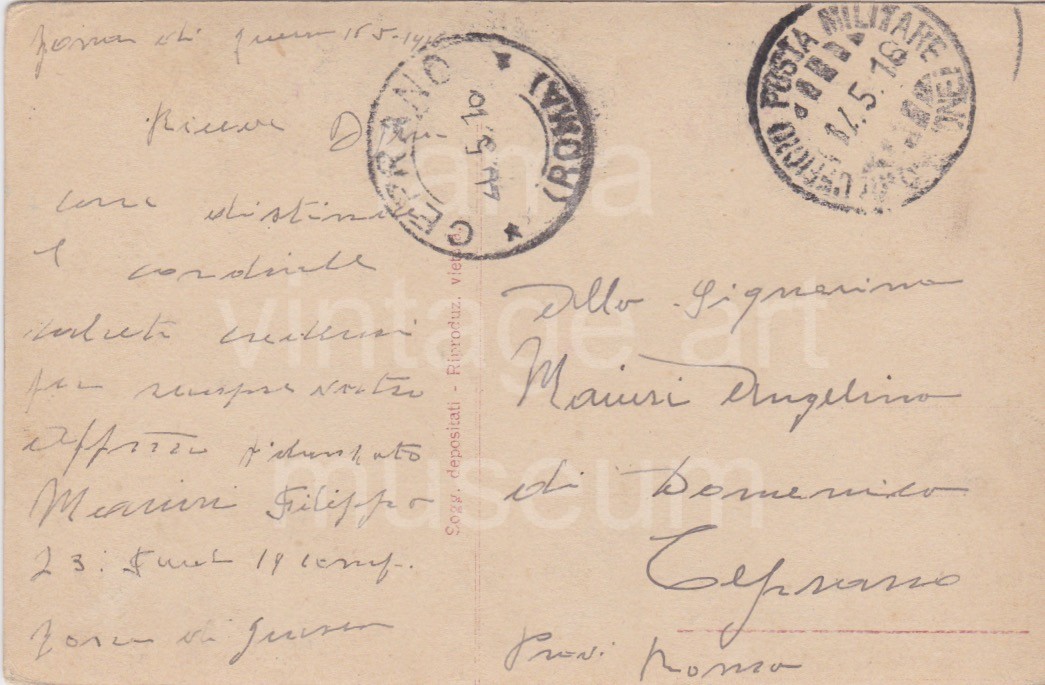 Zona di guerra 15-5-18
Riceve
distin
e cordiale
saluti credimi
per sempre vostro
Affmo fidanzato
Maiuri Filippo
23. 19 comp.
Zona di guerra
CEPRANO (ROMA)
UFFICIO POSTA MILITARE
17.5.18
Sogg. depositati - Riproduz. vietata
Alla Signorina
Maiuri Angelina
di Domenico
Ceprano
Provi Roma
tama
vintage art
museum